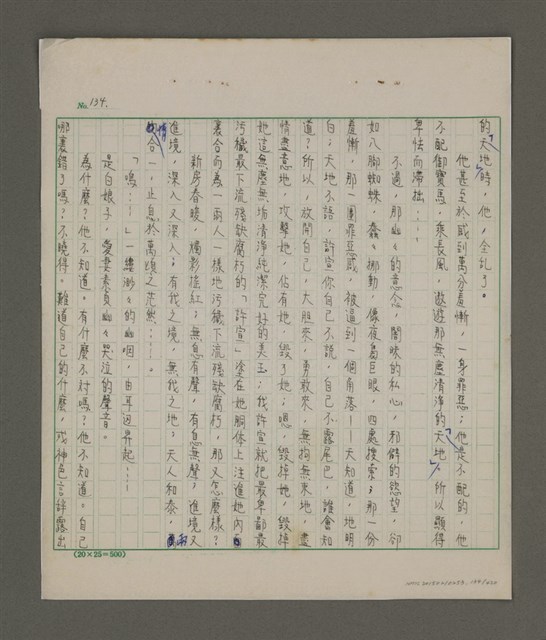 No. 134.
的「天地」時，他，全亂了。
他甚至於感到萬分羞慚，一身罪惡；他是不配的，他
不配御寶馬，乘長風，遨遊那無塵清淨的「天地」，所以顯得
卑怯而滯拙……
不過，那幽幽的意念，闇昧的私心，和僻的慾望，卻
如八腳蜘蛛，蠢蠢挪動，像夜梟巨眼，四處搜索；那一份
羞慚，那一團罪惡感，被逼到一個角落——天知道，地明
白；天地不語，許宣你自己不說，自己不露尾巴，誰會知
道？所以，放開自己，大膽來，勇敢來，無拘無束地，盡
情盡意地，攻擊她，佔有她，毀了她；嗯，毀掉她，毀掉
她這無塵無垢清淨純潔完好的美玉；我許宣就把最卑鄙最
污穢最下流殘缺腐朽的「許宣」塗在她胴體上注進她內
裏合而為一兩人一樣地污穢下流殘缺腐朽，那又怎麼樣？
新房春暖，燭影搖紅；無息有聲，有息無聲；進境又
進境，深入又深入；有我之境，無我之地；天人和泰，
情合一，止息於萬頃之茫然……。
「嗚……」一縷渺渺的幽咽，由耳邊昇起……
是白娘子，愛妻素貞幽幽哭泣的聲音。
為什麼？他不知道。有什麼不對嗎？他不知道。自己
哪裏錯了嗎？不曉得。難道自己的什麼，或神色言辭露出
(20×25=500)